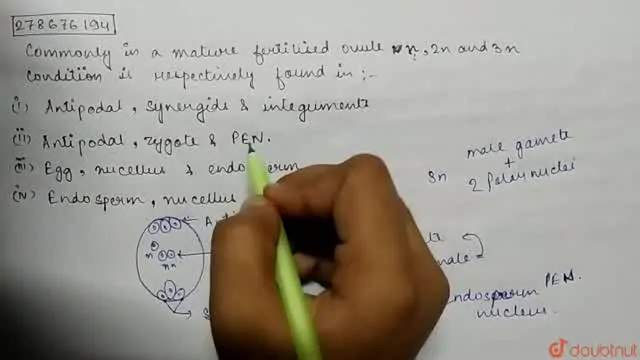 278676194
Commonly in a mature fertilised ovule n, 2n and 3n
condition is respectively found in :-
(i) Antipodal, synergids & integuments
(ii) Antipodal, zygote & PEN.
(iii) Egg, nucellus & endosperm
(iv) Endosperm, nucellus
male gamete
+
3n
2 Polar nuclei
n
nn
endosperm PEN.
nucleus.
doubtnut